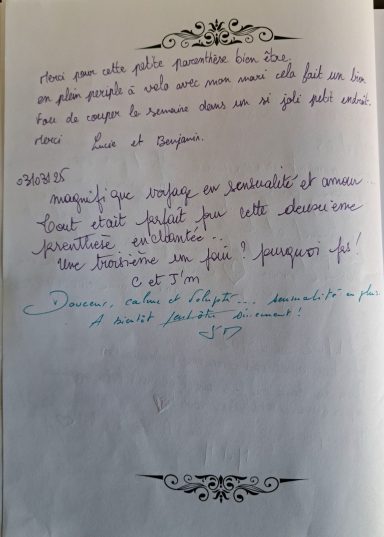 Merci pour cette petite parenthèse bien être.
en plein periple à velo avec mon mari cela fait un bien
fou de couper la semaine dans un si joli petit endroit.
Merci Lucie et Benjamin.
03/03/25
magnifique voyage en sensualité et amour...
Tout etait parfait pour cette deuxieme
parenthèse enchantée...
Une troisième un jour? pourquoi pas!
C et J'm
Douceur, calme et volupté... sensualité en plus
A bientôt sûrement!